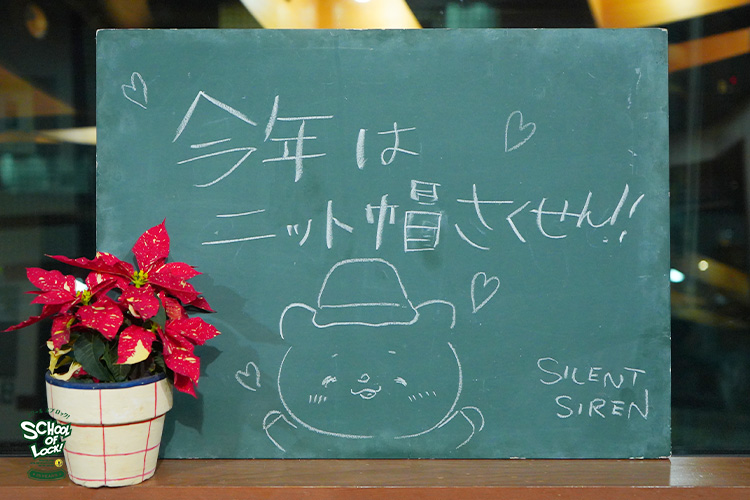 今年は
ニット帽さくせん!!
SILENT
SIREN
SCHOOL
OF
LOCK!